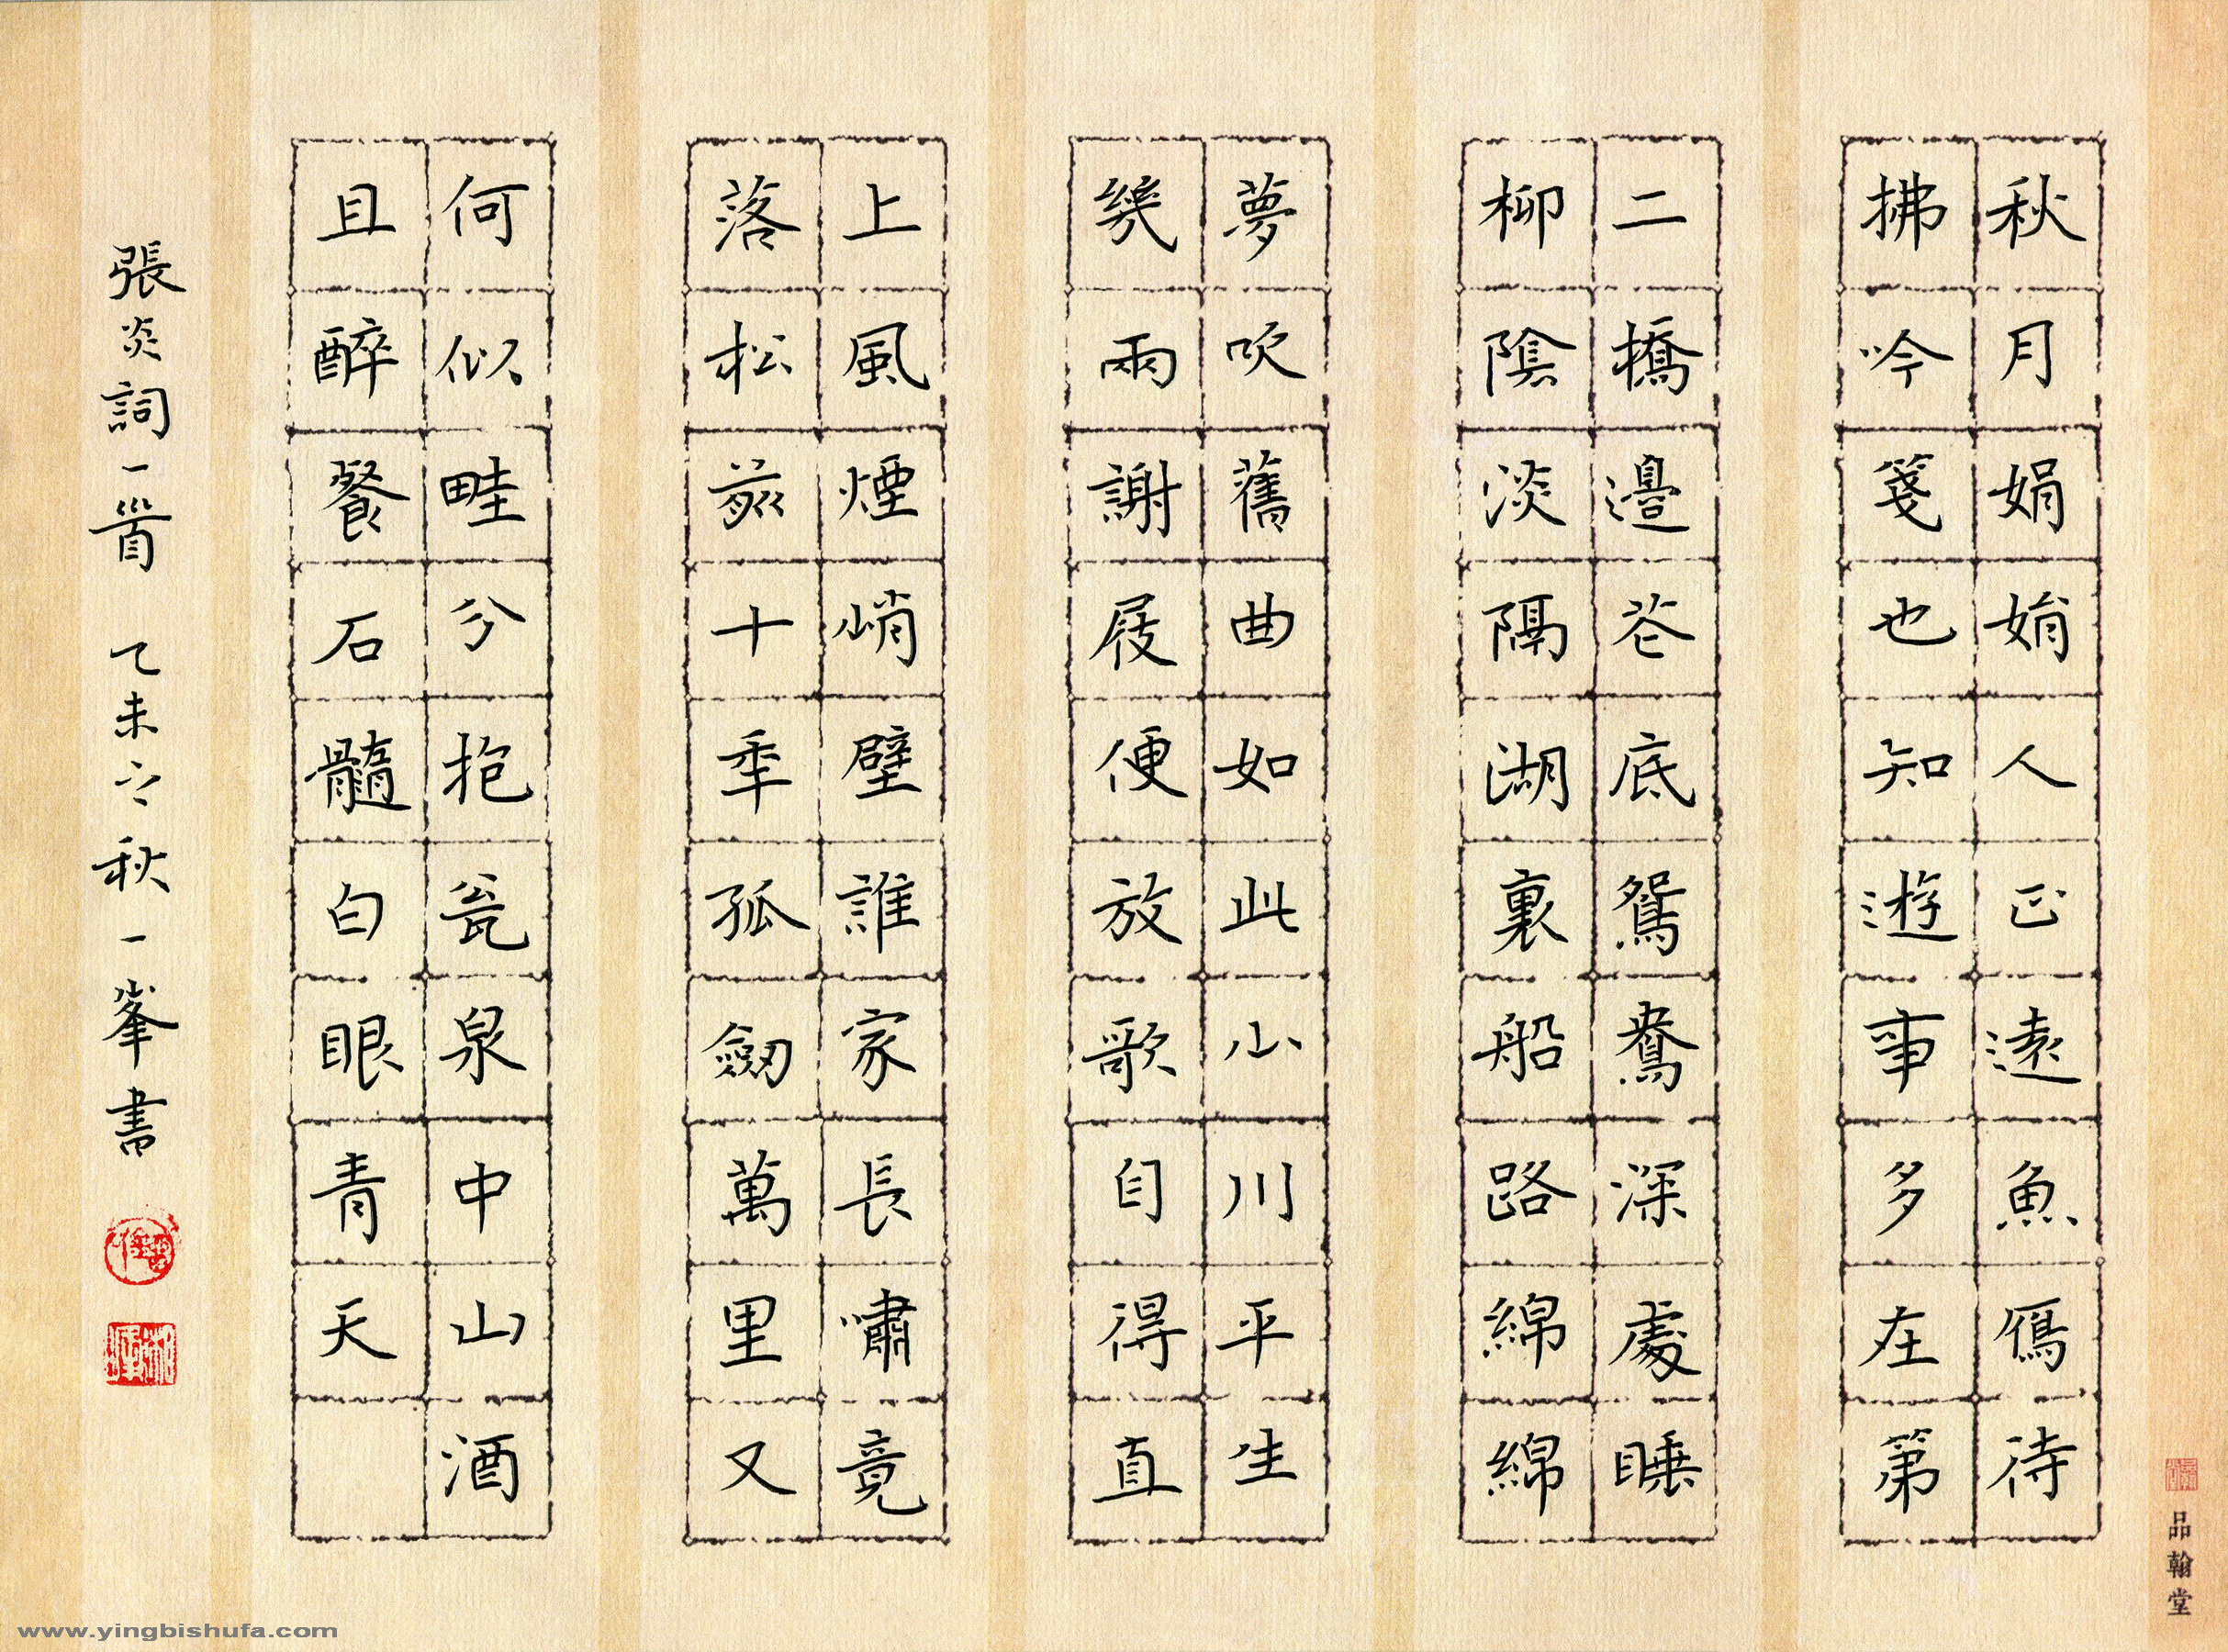 秋月娟娟人正遠魚鴈待
拂吟箋也知遊事多在第
二橋邊花底鴛鴦深處睡
柳陰淡隔湖裏船路綿綿
夢吹舊曲如此山川平生
幾兩謝屐便放歌自得直
上風煙峭壁誰家長嘯竟
落松前十年孤劍萬里又
何似畦分抱瓮泉中山酒
且醉餐石髓白眼青天
張炎詞一首 乙未之秋一峯書
品翰堂
www.yingbishufa.com